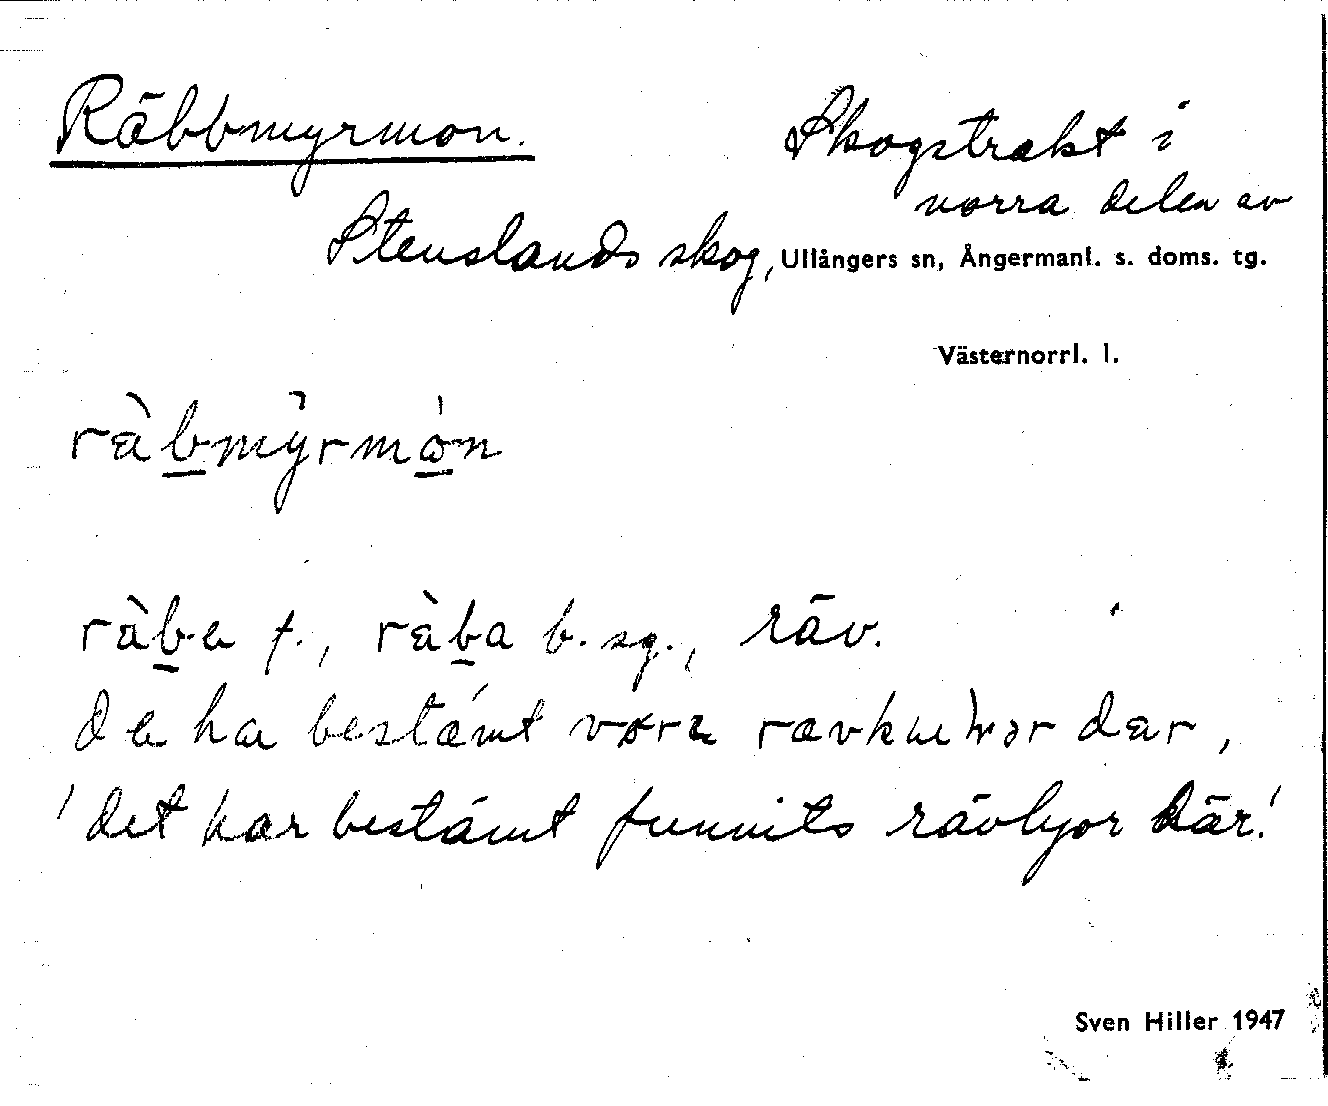 Räbbmyrmon.
Skogstrakt i
norra delen av
Stenslands skog, Ullångers sn, Ångermanl. s. doms. tg.
Västernorrl. l.
ràbmỳrmón
ràba f., ràba b. sg., räv.
de ha bestámt vɷra rævkuɩɩ̯ər dær,
'det har bestämt funnits rävlyor där.'
Sven Hiller 1947